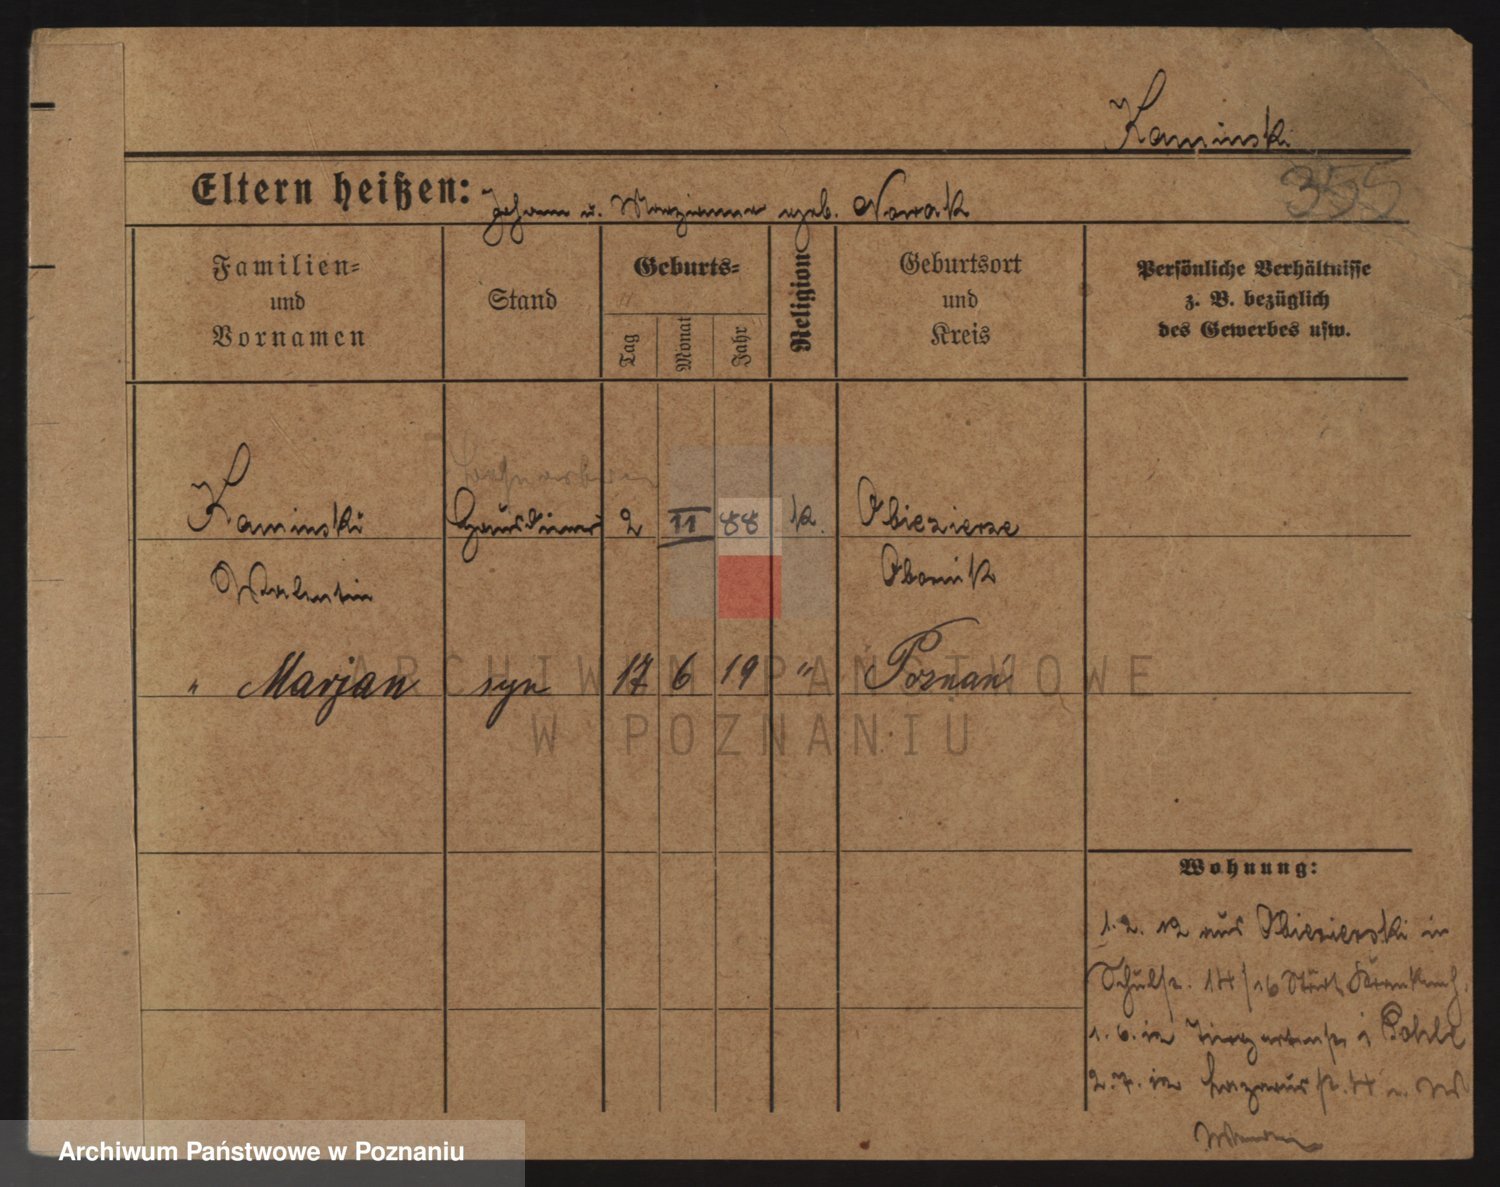 Kaminski
355
Eltern heißen: Johann u. Marianna geb. Nowak
Familien-
und
Vornamen
Stand
Geburts-
Tag
Monat
Jahr
Religion
Geburtsort
und
Kreis
Persönliche Verhältnisse
z. B. bezüglich
des Gewerbes usw.
Kaminski Hausdiener 2 11 88 k. Obiezierze
Valentin Obornik
" Marjan syn 17 6 19 " Poznań
ARCHIWUM PAŃSTWOWE
W POZNANIU
Wohnung:
1. 2. 12 aus Obiezierski in
Schulstr. 14/16 Städt. Krankenh.
1. 6. in Tiergartenstr. b
2. 7. in Lazarusstr.
Archiwum Państwowe w Poznaniu